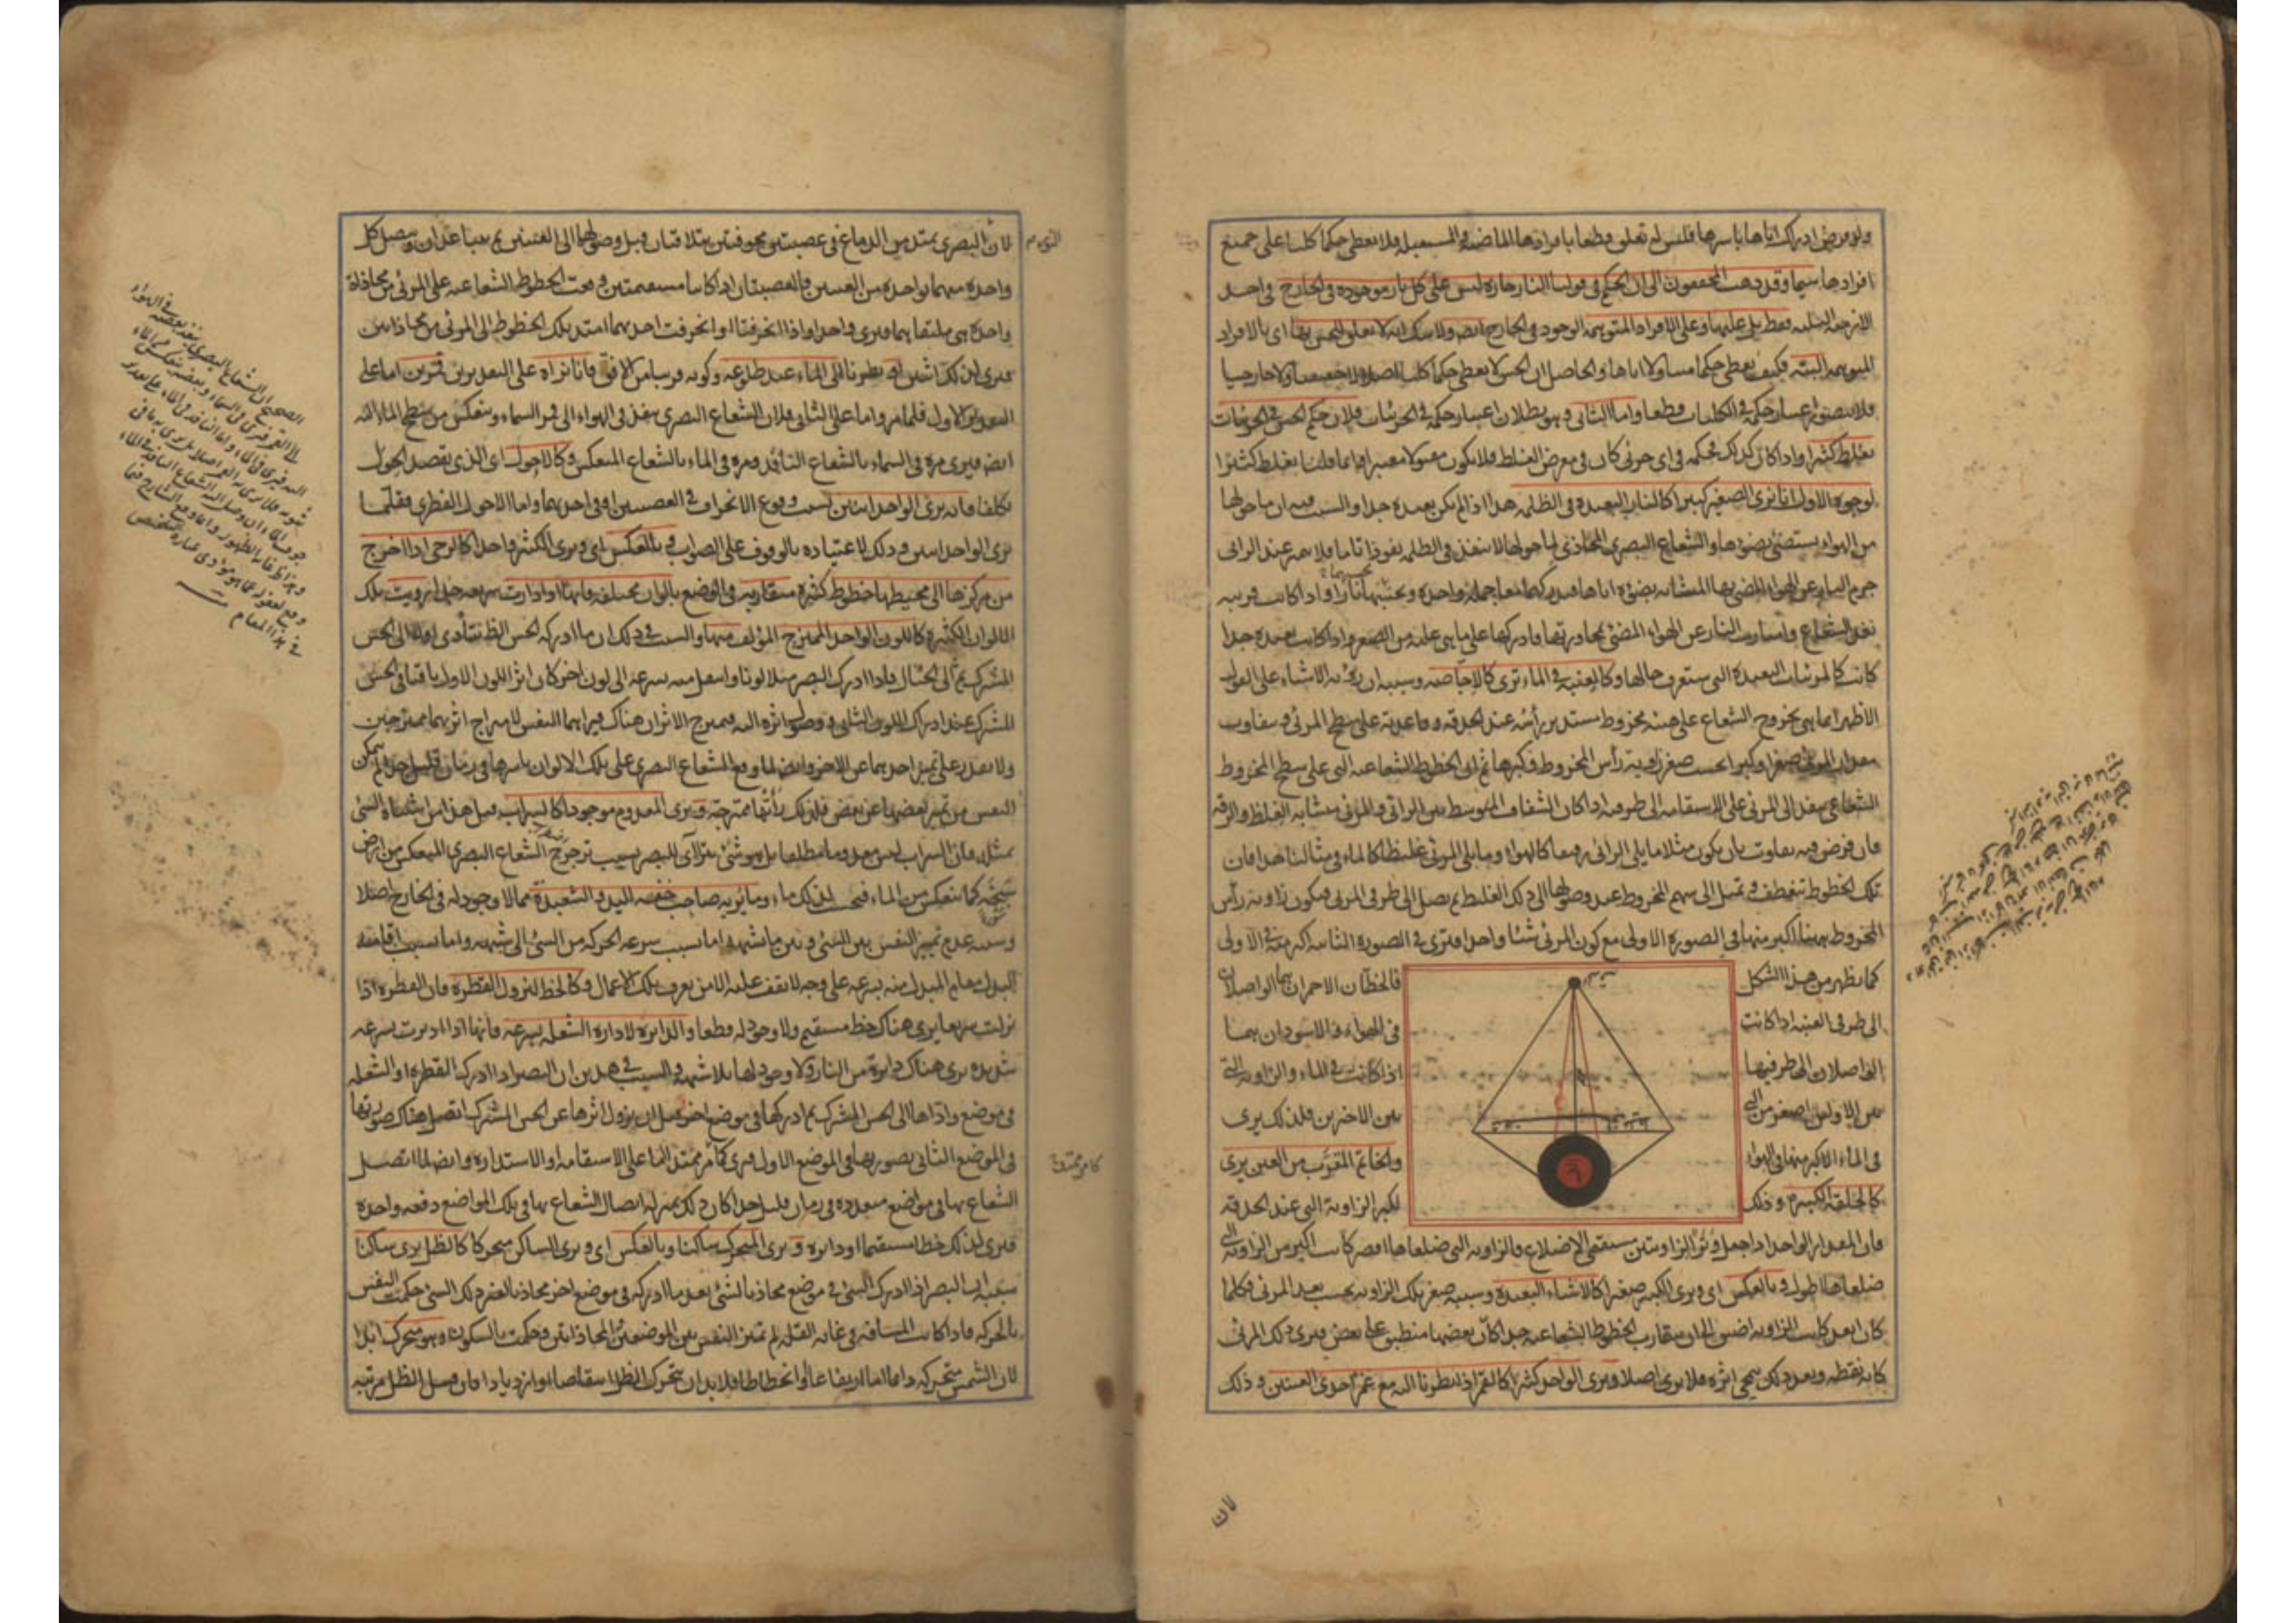 ولو فرض ادراك اياها باسرها فليس له تعلق قطعا بافرادها الماضية والمستقبلة فلا يعطى حكما كليا على جميع
افرادها سيما وقد ذهب المحققون الى ان الحكم فى قولنا النار حارة ليس على كل نار موجودة فى الخارج فى احد
الازمنة الثلثة فقط بل عليها وعلى الافراد المتوهمة الوجود فى الخارج ايضا ولا شك انه لا تعلق للحس بها اى بالافراد
المتوهمة البتة فكيف يعطى حكما متناولا اياها والحاصل ان الحس لا يعطى حكما كليا اصلا لا حقيقيا ولا خارجيا
فلا يتصور اعتبار حكمه فى الكليات قطعا واما الثانى وهو بطلان اعتبار حكمه فى الجزئيات فلان حكم الحس فى الجزئيات
يغلط كثيرا واذا كان كذلك فحكمه فى اى جزئى كان فى معرض الغلط فلا يكون مقبولا معتبرا وانما قلنا يغلط كثيرا
لوجوه الاول انا نرى الصغير كبيرا كالنار البعيدة فى الظلمة هذا اذا لم تكن بعيدة جدا والسبب فيه ان ما حولها
من الهواء يستضئ بضوءها والشعاع البصرى المحاذى لما حولها لا ينفذ فى الظلمة نفوذا تاما فلا يميز عند الرائى
جرم النار عن الهواء المضئ بها المشابه بضوءه اياها فيدركهما معا جملة واحدة ويحسبهما نارا واذا كانت قريبة
نفذ الشعاع وامتازت النار عن الهواء المضئ بمجاورتها فادركها على ما هى عليه من الصغر واذا كانت بعيدة جدا
كانت كالمرئيات البعيدة التى ستعرف حالها وكالعنبة فى الماء ترى كالاجاصة وسببه ان رؤية الاشياء على القول
الاظهر انما هى بخروج الشعاع على هيئة مخروط مستدير رأسه عند الحدقة وقاعدته على سطح المرئى ويتفاوت
مقدار المرئى صغرا وكبرا بحسب صغر زاوية رأس المخروط وكبرها ثم ان الخطوط الشعاعية التى على سطح المخروط
الشعاعى ينفذ الى المرئى على الاستقامة الى طرفيه اذا كان الشفاف المتوسط بين الرائى والمرئى متشابه الغلظ والرقة
فان فرض فيه تفاوت بان يكون مثلا ما يلى الرائى رقيقا كالهواء وما يلى المرئى غليظا كالماء فى مثالنا هذا فان
تلك الخطوط تنعطف وتميل الى سهم المخروط عند وصولها الى ذلك الغليظ ثم يصل الى طرفى المرئى فيكون زاوية رأس
المخروط ههنا اكبر منها فى الصورة الاولى مع كون المرئى شيئا واحدا فترى فى الصورة الثانية اكبر منه فى الاولى
كما يظهر من هذا الشكل فالخطان الاحمران هما الواصلان
الى طرفى العنبة اذا كانت فى الهواء والاسودان هما
الواصلان الى طرفيها اذا كانت فى الماء والزاوية التى
بين الاولين اصغر من التى بين الاخرين فلذلك يرى
فى الماء اكبر منها فى الهواء وكالخاتم المقرب من العين يرى
كالحلقة الكبيرة وذلك لكبر الزاوية التى عند الحدقة
فان المقدار الواحد اذا جعل وترا لزاويتين مستقيمتى الاضلاع فالزاوية التى ضلعاها اقصر كانت اكبر من الزاوية التى
ضلعاها اطول وبالعكس اى ونرى الكبير صغيرا كالاشياء البعيدة وسببه صغر تلك الزاوية بحسب بعد المرئى فكلما
كان ابعد كانت الزاوية اضيق الى ان يتقارب الخطوط الشعاعية جدا كأن بعضها منطبق على بعض فيرى ذلك المرئى
كانه نقطة وبعد ذلك يمحى اثره فلا يرى اصلا ونرى الواحد كثيرا كالقمر اذا نظرنا اليه مع غمز احدى العينين وذلك
لان
لان النور البصرى يمتد من الدماغ فى عصبتين مجوفتين يتلاقتان قبل وصولها الى العينين ثم يتباعدان ويتصل كل
واحدة منهما بواحدة من العينين فالعصبتان اذا كانتا مستقيمتين وقعت الخطوط الشعاعية على المرئى من محاذاة
واحدة هى ملتقاهما فيرى واحدا واذا انحرفتا او انحرفت احديهما امتد تلك الخطوط الى المرئى من محاذاتين
فيرى لذلك اثنين او نظرنا الى الماء عند طلوعه وكونه قريبا من الافق فانا نراه على التقديرين قمرين اما على
التقدير الاول فلما مر واما على الثانى فلان الشعاع البصرى ينفذ فى الهواء الى قمر السماء وينعكس من سطح الماء اليه
ايضا فيرى مرة فى السماء بالشعاع النافذ ومرة فى الماء بالشعاع المنعكس وكالاحول اى الذى يقصد الحول
تكلفا فانه يرى الواحد اثنين لسبب وقوع الانحراف فى العصبتين او فى احديهما واما الاحول الفطرى فقلما
يرى الواحد اثنين وذلك لاعتياده بالوقوف على الصواب وبالعكس اى ونرى الكثير واحدا كالرحى اذا اخرج
من مركزها الى محيطها خطوط كثيرة متقاربة فى الوضع بالوان مختلفة فانها اذا دارت سريعة جدا رؤيت تلك
الالوان الكثيرة كاللون الواحد الممتزج المؤلف منها والسبب فى ذلك ان ما ادركه الحس الظاهر يتأدى اولا الى الحس
المشترك ثم الى الخيال فاذا ادرك البصر مثلا لونا وانتقل منه بسرعة الى لون اخر كان اثر اللون الاول باقيا فى الحس
المشترك عند ادراك اللون الثانى ووصول اثره اليه فيمتزج الاثران هناك فيراهما النفس لامتزاج اثرهما ممتزجين
ولا يقدر على تمييز احدهما عن الاخر وايضا لما وقع الشعاع البصرى على تلك الالوان باسرها فى زمان قليل جدا لم يتمكن
النفس من تمييز بعضها عن بعض فلذلك رأتها ممتزجة ونرى المعدوم موجودا كالسراب قيل هذا من اشتباه الشئ
بمثله فان السراب ليس معدوما مطلقا بل هو شئ يتراآى للبصر بسبب ترجرج الشعاع البصرى المنعكس من ارض
سبخة كما ينعكس من الماء فيحسب لذلك ماء وما يريه صاحب خفة اليد والشعبذة مما لا وجود له فى الخارج اصلا
وسببه عدم تمييز النفس بين الشئ وبين ما يشبهه اما بسبب سرعة الحركة من الشئ الى شبهه واما بسبب اقامة
البدل مقام المبدل منه بسرعة على وجه لا يقف عليه الا من يعرف تلك الاعمال وكالخط لنزول القطرة فان القطرة اذا
نزلت سريعا يرى هناك خط مستقيم ولا وجود له قطعا والدائرة لادارة الشعلة بسرعة فانها اذا اديرت بسرعة
شديدة يرى هناك دائرة من النار ولا وجود لها بلا شبهة والسبب فى هذين ان البصر اذا ادرك القطرة او الشعلة
فى موضع واداها الى الحس المشترك ثم ادركها فى موضع اخر قبل ان يزول اثرها عن الحس المشترك اتصل هناك صورتها
فى الموضع الثانى بصورتها فى الموضع الاول فيرى كأمر ممتد اما على الاستقامة او الاستدارة وايضا لما اتصل
الشعاع بها فى مواضع متعددة فى زمان قليل جدا كان ذلك بمنزلة اتصال الشعاع بها فى تلك المواضع دفعة واحدة
فيرى لذلك خطا مستقيما او دائرة ونرى المتحرك ساكنا وبالعكس اى ونرى الساكن متحركا كالظل يرى ساكنا
سببه ان البصر اذا ادرك الشئ فى موضع محاذيا لشئ بعد ما ادركه فى موضع اخر محاذيا لغير ذلك الشئ حكمت النفس
بالحركة فاذا كانت المسافة فى غاية القلة لم تميز النفس بين الموضعين والمحاذاتين وحكمت بالسكون وهو متحرك ابدا
لان الشمس متحركة دائما اما ارتفاعا او انحطاطا فلا بد ان يتحرك الظل انتقاصا او ازديادا فان قيل الظل مرتبة